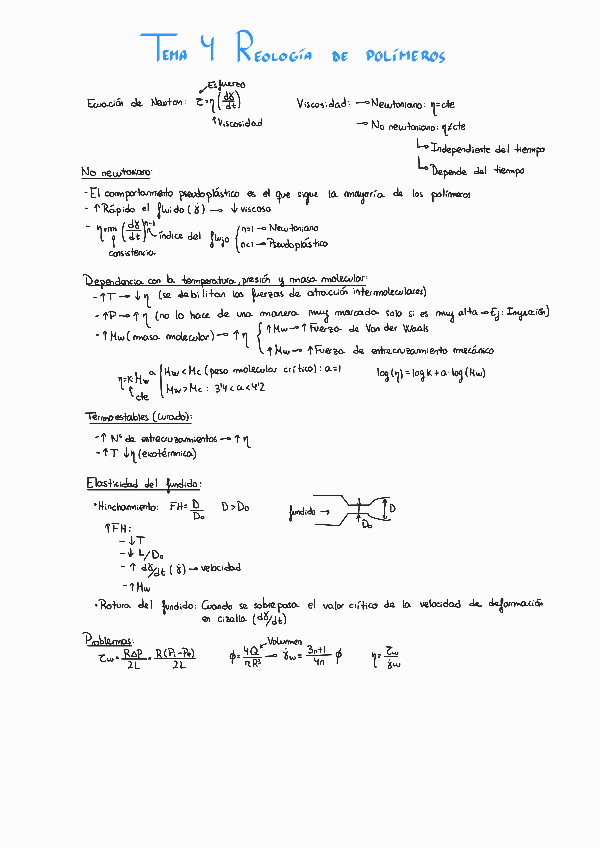 Tema 4 Reología de polímeros
Esfuerzo
Ecuación de Newton: τ=η(dγ/dt)
Viscosidad
Viscosidad: → Newtoniano: η=cte
→ No newtoniano: η≠cte
↳ Independiente del tiempo
↳ Depende del tiempo
No newtoniano:
- El comportamiento pseudoplástico es el que sigue la mayoría de los polímeros
- ↑ Rápido el fluido (γ̇) → ↓ viscoso
- η=m(dγ/dt)^n-1 → índice del flujo { n=1 → Newtoniano
n<1 → Pseudoplástico
consistencia
Dependencia con la temperatura, presión y masa molecular:
- ↑T → ↓η (se debilitan las fuerzas de atracción intermoleculares)
- ↑P → ↑η (no lo hace de una manera muy marcada solo si es muy alta → Ej: Inyección)
- ↑Mw (masa molecular) → ↑η { ↑Mw → ↑Fuerza de Van der Waals
↑Mw → ↑Fuerza de entrecruzamiento mecánico
η=K Mw^a { Mw<Mc (peso molecular crítico): a=1
Mw>Mc: 3'4<a<4'2
cte
log(η)=log K+a·log(Mw)
Termoestables (curado):
- ↑ Nº de entrecruzamientos → ↑η
- ↑T ↓η (exotérmica)
Elasticidad del fundido:
• Hinchamiento: FH=D/D₀ D>D₀
fundido → D₀ D
↑FH:
- ↓T
- ↓L/D₀
- ↑ dγ/dt (γ̇) → velocidad
- ↑Mw
• Rotura del fundido: Cuando se sobrepasa el valor crítico de la velocidad de deformación
en cizalla (dγ/dt)
Problemas:
τw = RΔP/2L = R(P₁-P₀)/2L
Volumen
ϕ=4Q/πR³ → γ̇w = 3n+1/4n ϕ
η=τw/γ̇w